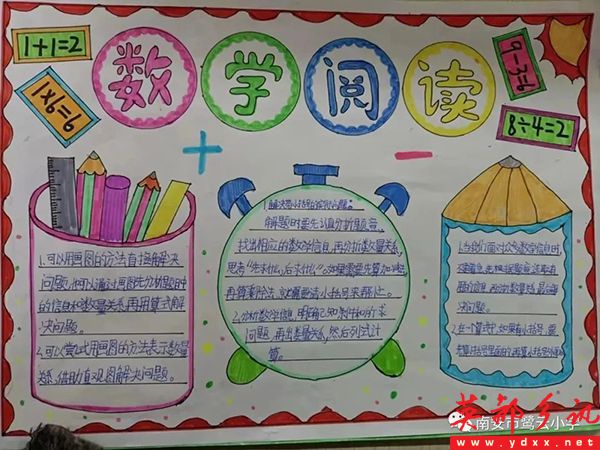 1+1=2
1×6=6
数学阅读
9-3=6
8÷4=2
+
-
1.可以用画图的方法直接解决
问题,也可以通过画图先分析题目中
的信息和数量关系,再用算式解
决问题。
2.可以尝试用画图的方法表示数量
关系,借助直观图解决问题。
解题时要先认真分析题意,
找出相应的数学信息,再分析数量关系,
思考“先求什么,后求什么”。如果需要先算加减法,
再算乘除法,
2.分析数学信息,明确已知条件和所求
问题,再出数量关系,然后列式计
算。
1.当我们面对众多数学信息时
决问题。
2.在一个算式中,如果有小括号,要
南安市莺云小学
英都乡讯
www.ydxx.net